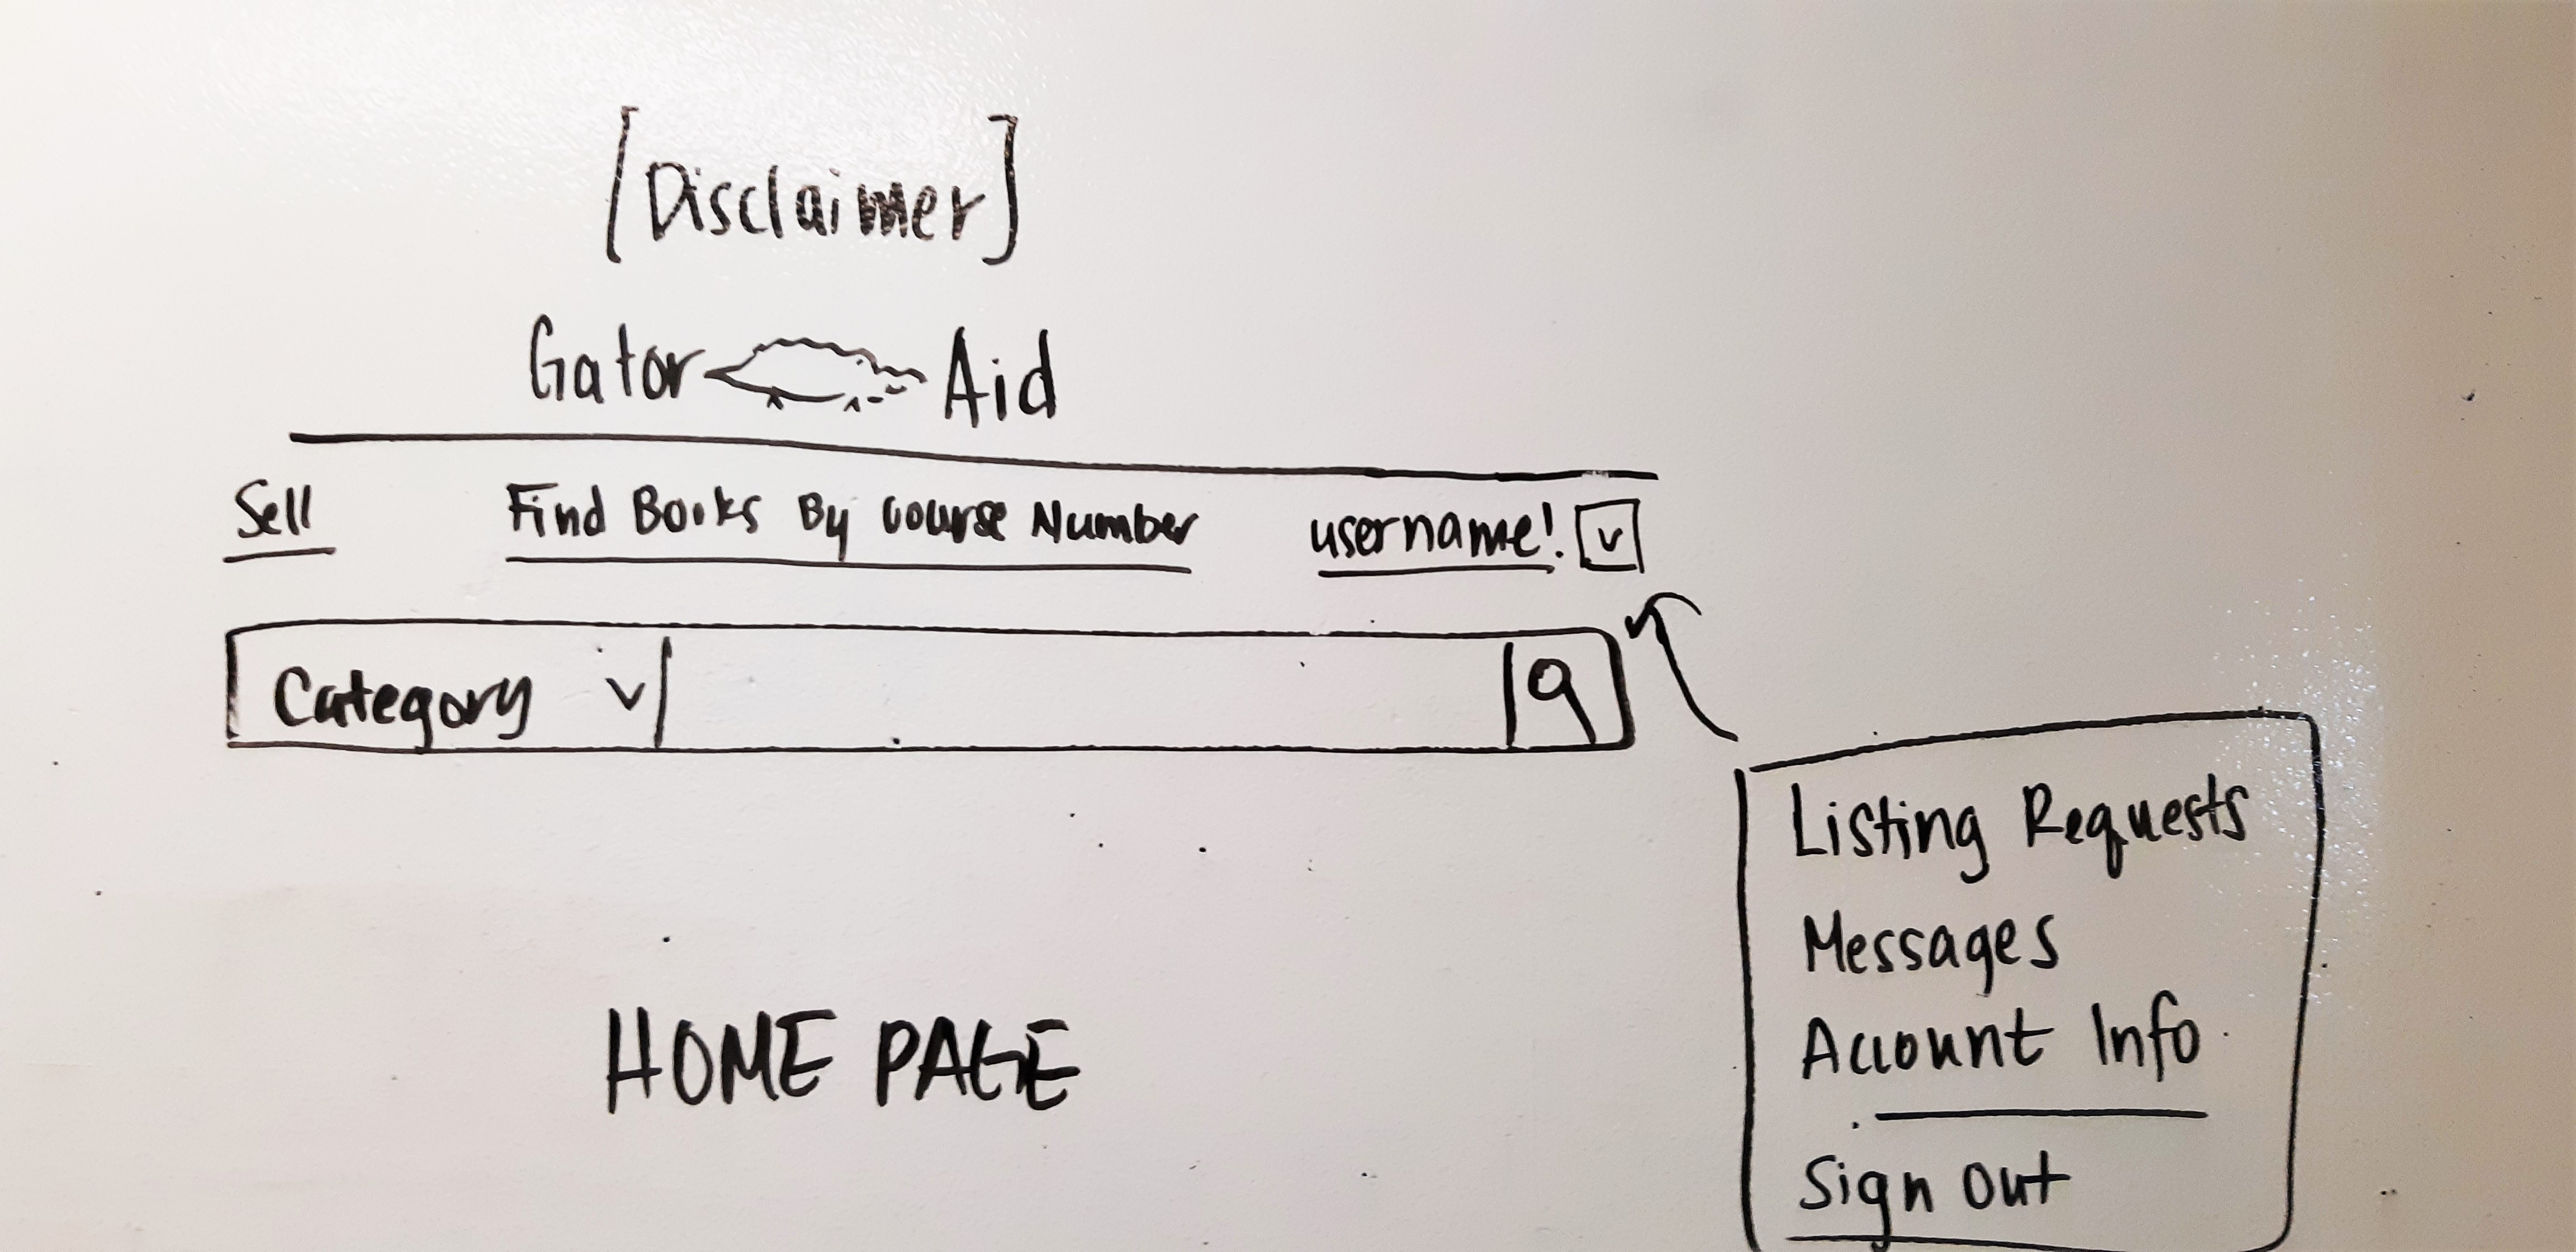 [Disclaimer]
Gator Aid
Sell Find Books By Course Number username! v
Category v
Listing Requests
Messages
Account Info
Sign Out
HOME PAGE